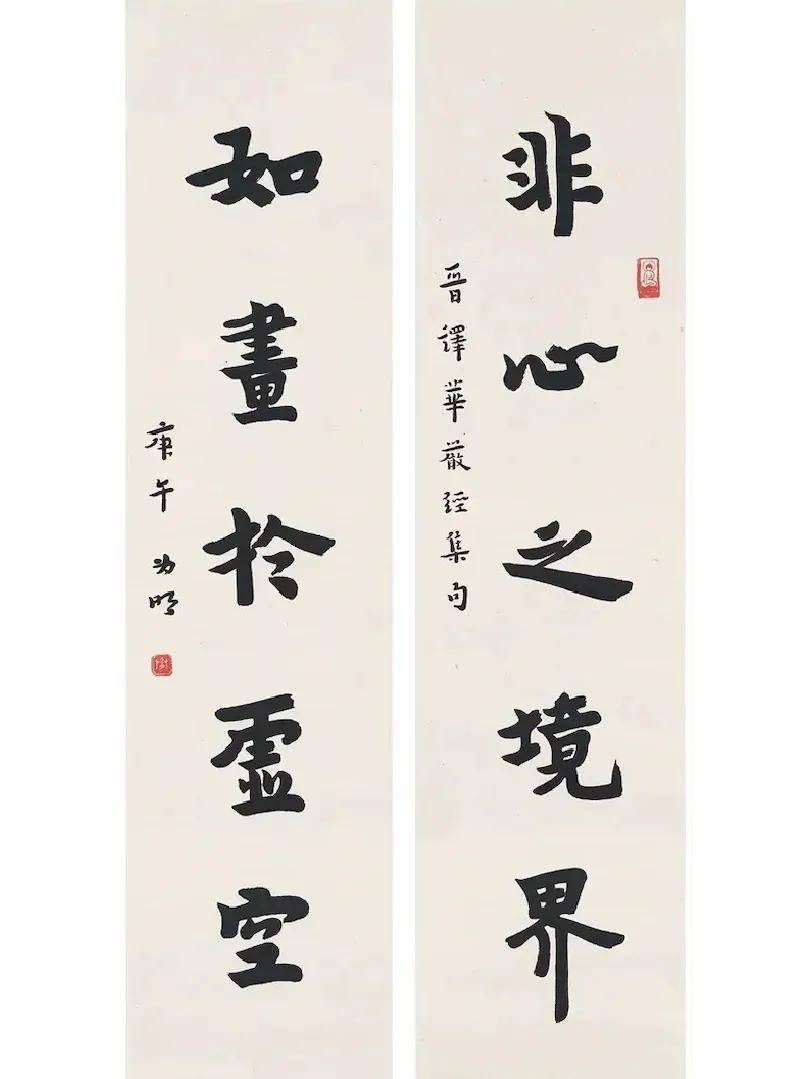 非心之境界
晉譯華嚴經集句
如畫於虛空
庚午 為明